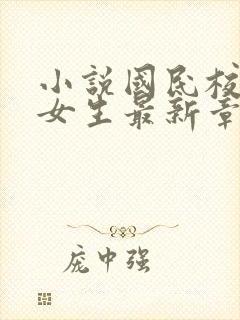 小說國民校
女生最新章
庞中强